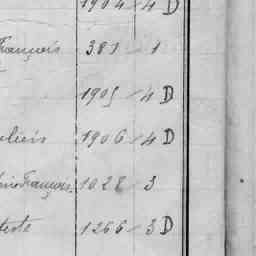 1904 4 D
François 381 1
1905 4 D
1906 4 D
François. 1028 3
1266 3 D